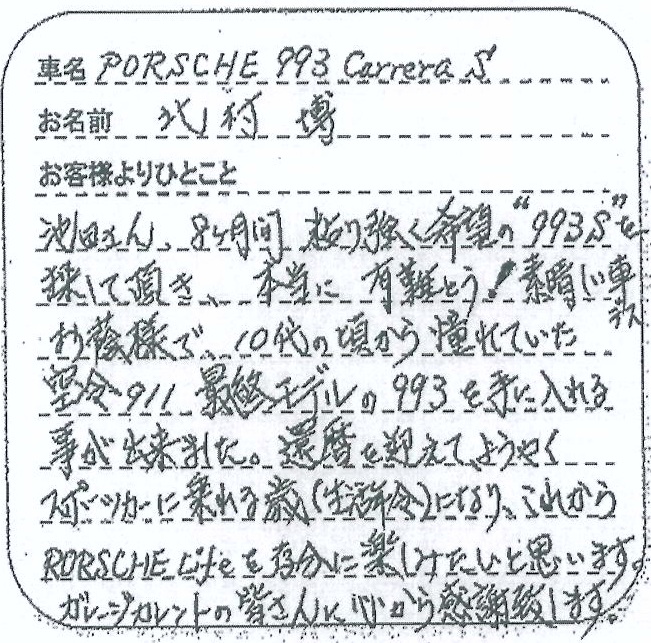 車名 PORSCHE 993 Carrera S
お名前 北村 博
お客様よりひとこと
池田さん、8ヶ月間 粘り強く希望の"993S"を
探して頂き、本当に有難とう!素晴しい車デス
お蔭様で、10代の頃から憧れていた
空冷911 最終モデルの993を手に入れる
事が出来ました。還暦を迎えて、ようやく
スポーツカーに乗れる歳(生活年令)になり、これから
PORSCHE Lifeを存分に楽しみたいと思います。
ガレージカレントの皆さんに心から感謝致します。